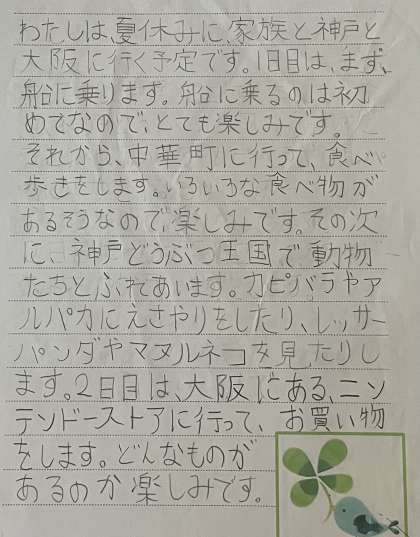 わたしは、夏休みに、家族と神戸と
大阪に行く予定です。1日目は、まず、
船に乗ります。船に乗るのは初
めてなので、とても楽しみです。
それから、中華町に行って、食べ
歩きをします。いろいろな食べ物が
あるそうなので、楽しみです。その次
に、神戸どうぶつ王国で動物
たちとふれあいます。カピバラやア
ルパカにえさやりをしたり、レッサー
パンダやマヌルネコを見たりし
ます。2日目は、大阪にある、ニン
テンドーストアに行って、お買い物
をします。どんなものが
あるのか楽しみです。